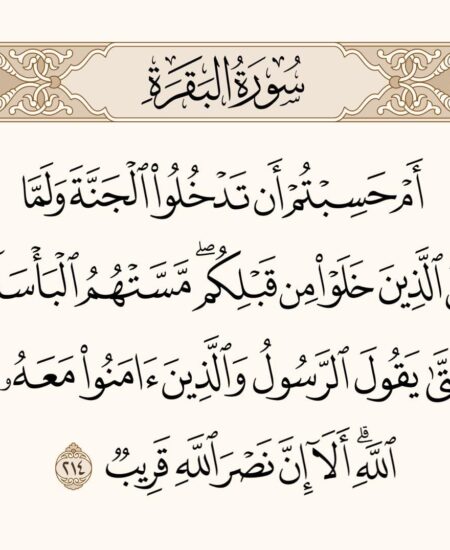 سُورَةُ الْبَقَرَةِ
أَمْ حَسِبْتُمْ أَن تَدْخُلُوا۟ ٱلْجَنَّةَ وَلَمَّا
ٱلَّذِينَ خَلَوْا۟ مِن قَبْلِكُم ۖ مَّسَّتْهُمُ
يَقُولَ ٱلرَّسُولُ وَٱلَّذِينَ ءَامَنُوا۟ مَعَهُۥ
ٱللَّهِ ۗ أَلَآ إِنَّ نَصْرَ ٱللَّهِ قَرِيبٌ ٢١٤